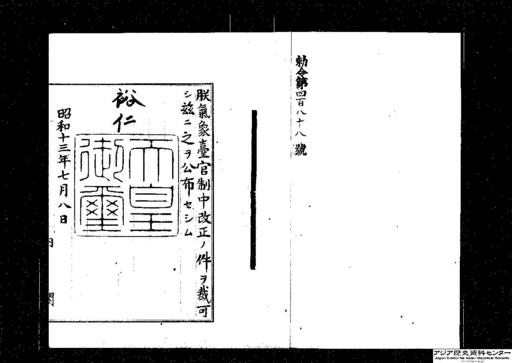 勅令第四百八十八號
朕氣象臺官制中改正ノ件ヲ裁可
シ茲ニ之ヲ公布セシム
裕仁
天皇
御璽
昭和十三年七月八日
内閣
アジア歴史資料センター
Japan Center for Asian Historical Records